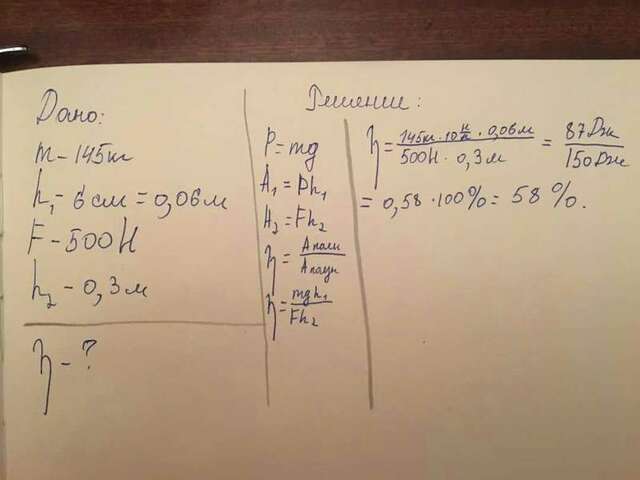 Дано:
m - 145кг
h₁ - 6 см = 0,06 м
F - 500Н
h₂ - 0,3 м
η - ?
Решение:
P = mg
A₁ = Ph₁
A₂ = Fh₂
η = Aполн / Aполуч
η = mgh₁ / Fh₂
η = 145кг · 10 Н/кг · 0,06 м / 500Н · 0,3 м = 87Дж / 150Дж
= 0,58 · 100% = 58 %.